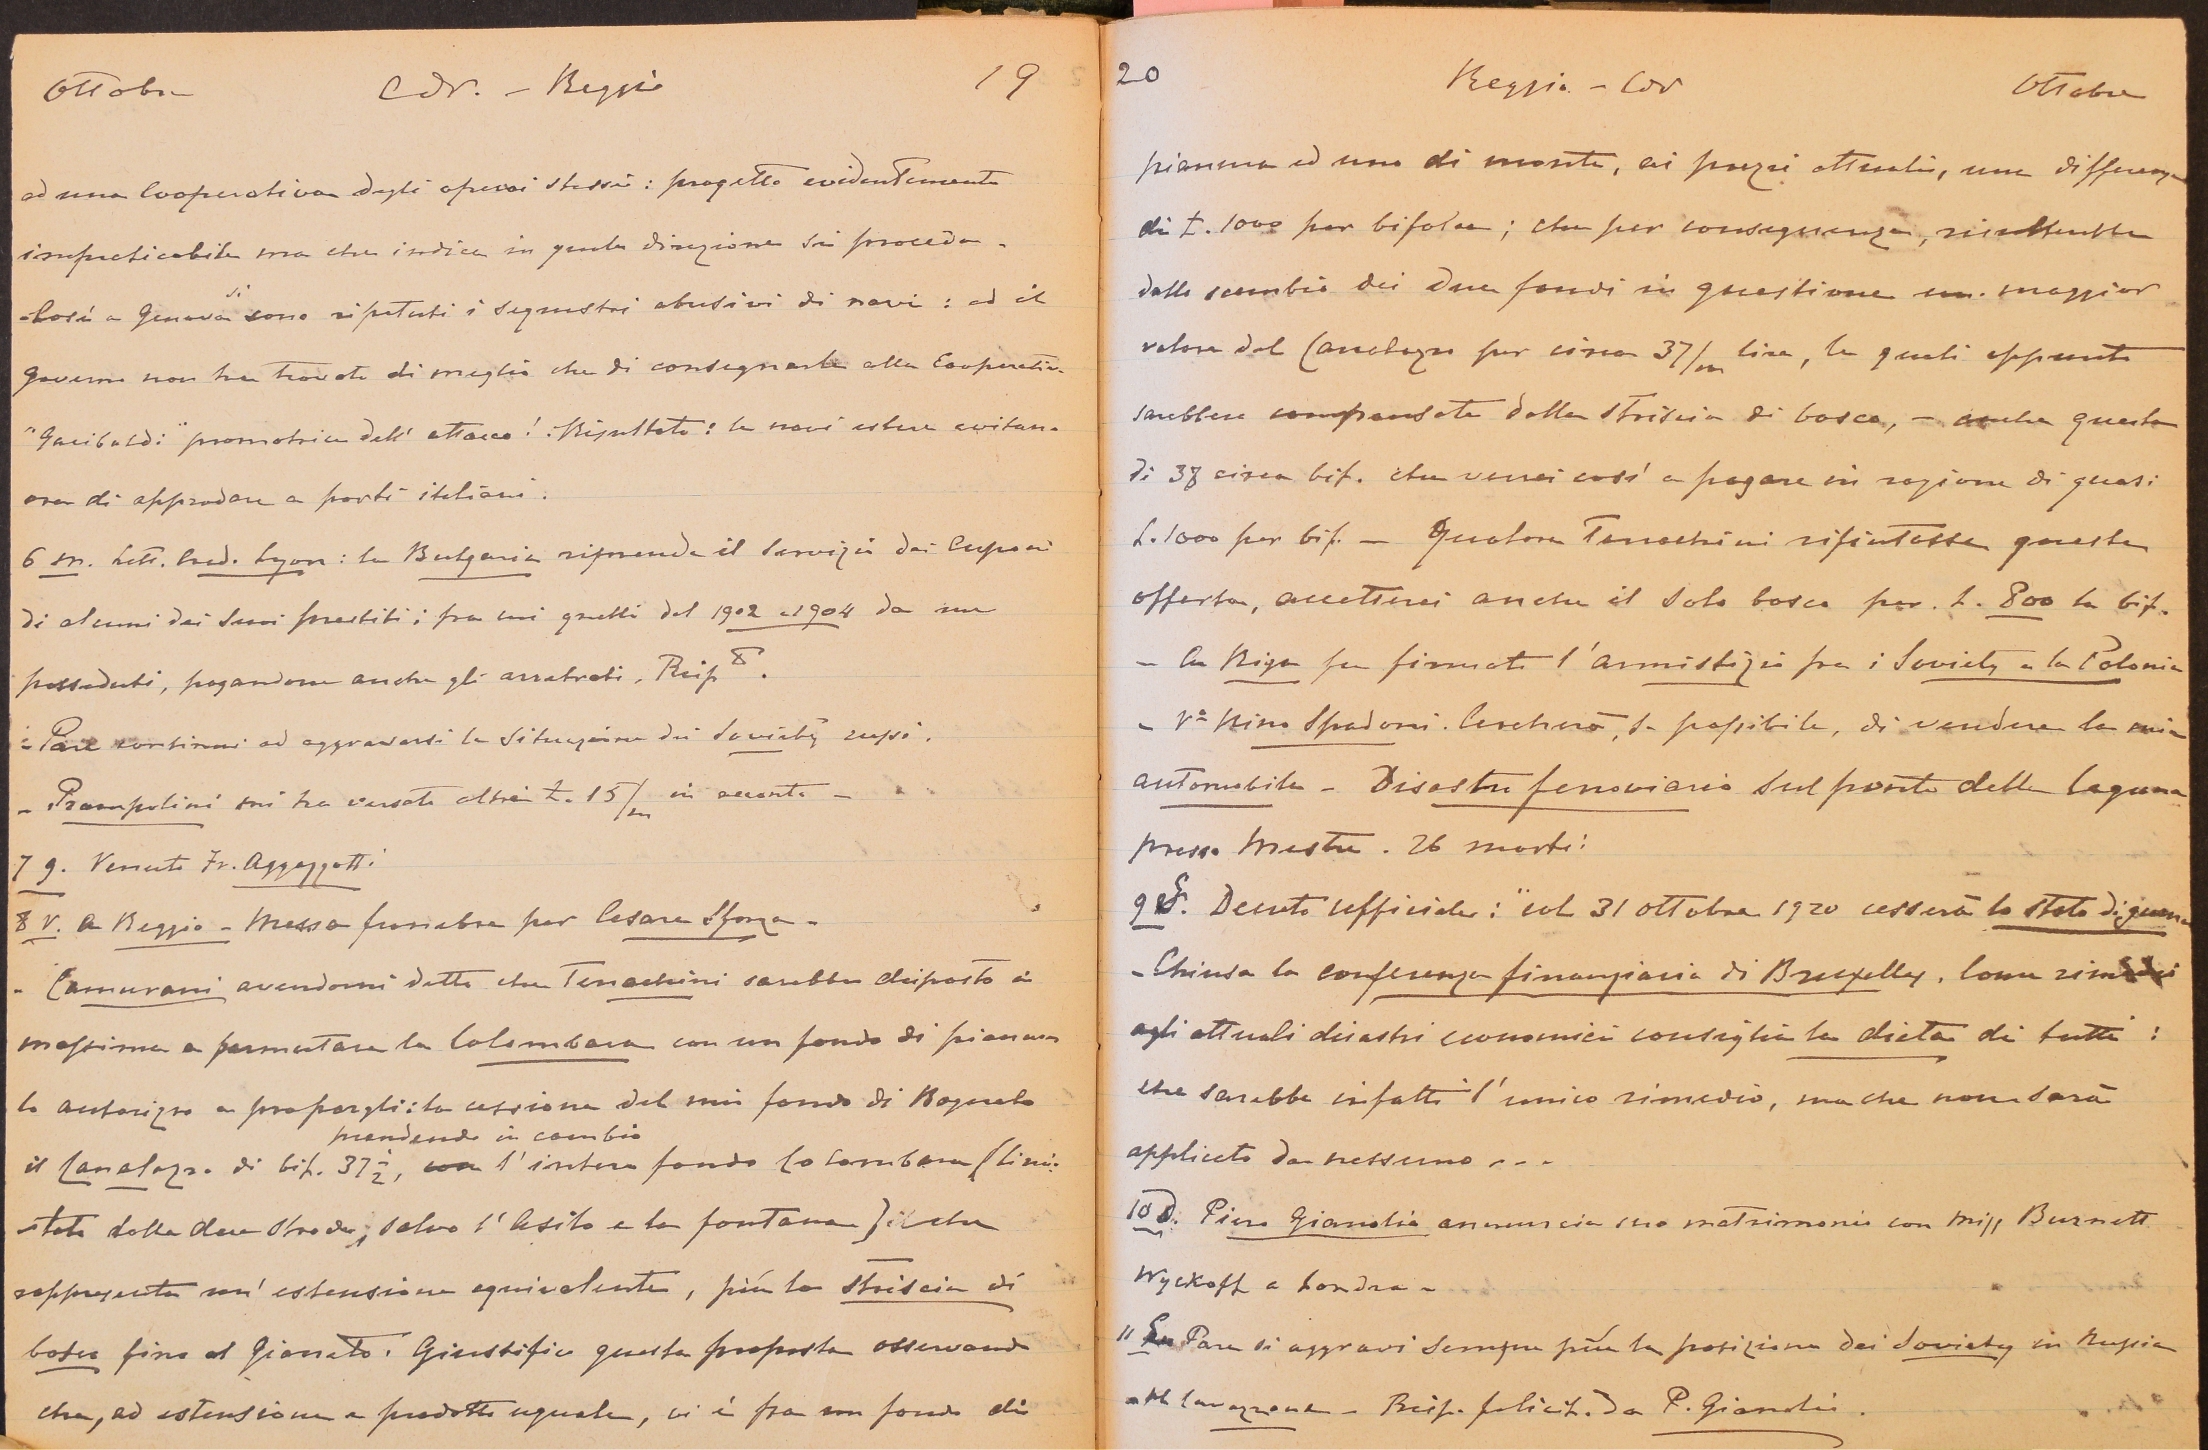 Ottobre Cdr. - Reggio 19
ad una Cooperativa degli operai stessi: progetto evidentemente
impraticabile ma che indica in quale direzione si proceda -
- Così a Genova si sono ripetuti i sequestri abusivi di navi: ed il
Governo non ha trovato di meglio che di consegnarle alla Cooperativa
"Garibaldi" promotrice dell' attacco! Risultato: le navi estere evitano
ora di approdare a porti italiani.
6 m. Lett. Cred. Lyon: la Bulgaria riprende il servizio dei Cuponi
di alcuni dei suoi prestiti; fra cui quelli del 1902 e 1904 da me
posseduti, pagandone anche gli arretrati. Risp 8.
- Pare continui ad aggravarsi la situazione dei Soviety russi.
- Prampolini mi ha versato altre £. 15/m in acconto -
7 g. Venuto Fr. Aggazzotti
8 v. a Reggio - Messa funebre per Cesare Sforza -
- Camurani avendomi detto che Terrachini sarebbe disposto in
massima a permutare la Colombara con un fondo di pianura
lo autorizzo a proporgli: la cessione del mio fondo di Bagnolo
prendendo in cambio
il Canalazzo di bif. 37 1/2, l'intero fondo Colombara (limi-
tato dalle due strade, salvo l'Asilo e la fontana) il che
rappresenta un' estensione equivalente, più la striscia di
bosco fino al Gianeto. Giustifico questa proposta osservando
che, ad estensione e prodotto uguale, vi è fra un fondo di
20 Reggio - Cdr Ottobre
pianura ed uno di monte, ai prezzi attuali, una differenza
di £. 1000 per bifolca; che per conseguenza, risulterebbe
dallo scambio dei due fondi in questione un maggior
valore del Canalazzo per circa 37/m lire, le quali appunto
sarebbero compensate dalla striscia di bosco, - anche questa
di 38 circa bif. che verrei così a pagare in ragione di quasi
L. 1000 per bif. - Qualora Terrachini rifiutasse questa
offerta, accetterei anche il solo bosco per L. 800 la bif.
- A Riga fu firmato l'armistizio fra i Soviety e la Polonia
- Va Nino Spadoni. Cercherà, se possibile, di vendere la mia
automobile - Disastro ferroviario sul ponte della laguna
presso Mestre. 26 morti!
9 S. Decreto ufficiale: "col 31 ottobre 1920 cesserà lo stato di guerra
- Chiusa la conferenza finanziaria di Bruxelles. Come rimedi
agli attuali disastri economici consiglia la dieta di tutti:
che sarebbe infatti l'unico rimedio, ma che non sarà
applicato da nessuno ...
10 D. Piero Gianolio annuncia suo matrimonio con Miss Burnett
Wyckoff a Londra -
11 Pare si aggravi sempre più la posizione dei Soviety in Russia
- Risp. felicit. da P. Gianolio.